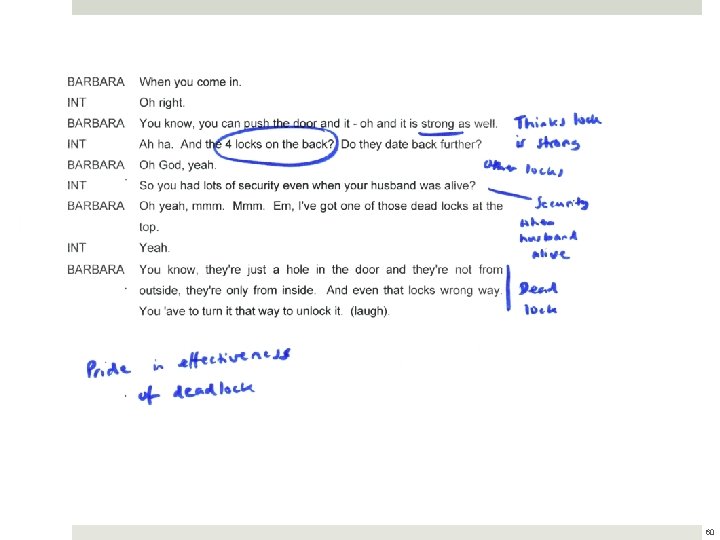 BARBARA When you come in.
INT Oh right.
BARBARA You know, you can push the door and it - oh and it is strong as well. Thinks lock
INT Ah ha. And the 4 locks on the back? Do they date back further? is strong
BARBARA Oh God, yeah. Other locks
INT So you had lots of security even when your husband was alive?
BARBARA Oh yeah, mmm. Mmm. Em, I've got one of those dead locks at the Security
top. when
husband
INT Yeah. alive
BARBARA You know, they're just a hole in the door and they're not from
outside, they're only from inside. And even that locks wrong way. Dead
You 'ave to turn it that way to unlock it. (laugh). lock
Pride in effectiveness
of deadlock
60